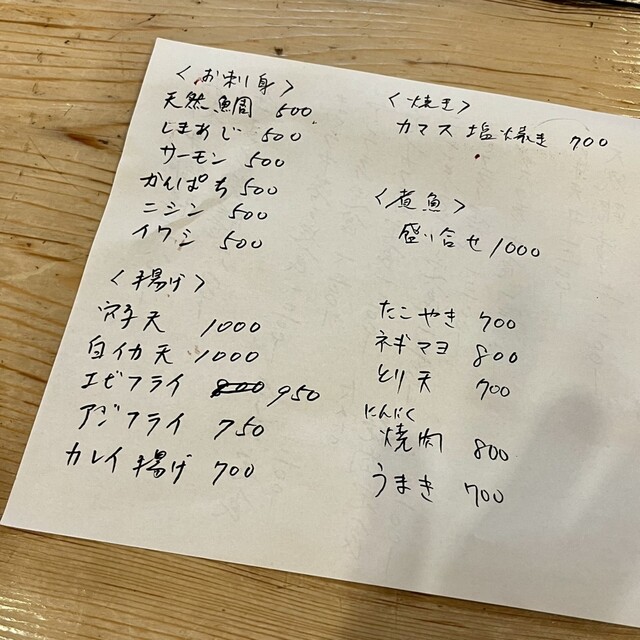 〈お刺身〉
天然鯛 500
しまあじ 500
サーモン 500
かんぱち 500
ニシン 500
イワシ 500
〈揚げ〉
穴子天 1000
白イカ天 1000
エビフライ 800 950
アジフライ 750
カレイ揚げ 700
〈焼き〉
カマス塩焼き 700
〈煮魚〉
盛り合せ 1000
たこやき 700
ネギマヨ 800
とり天 700
にんにく
焼肉 800
うまき 700